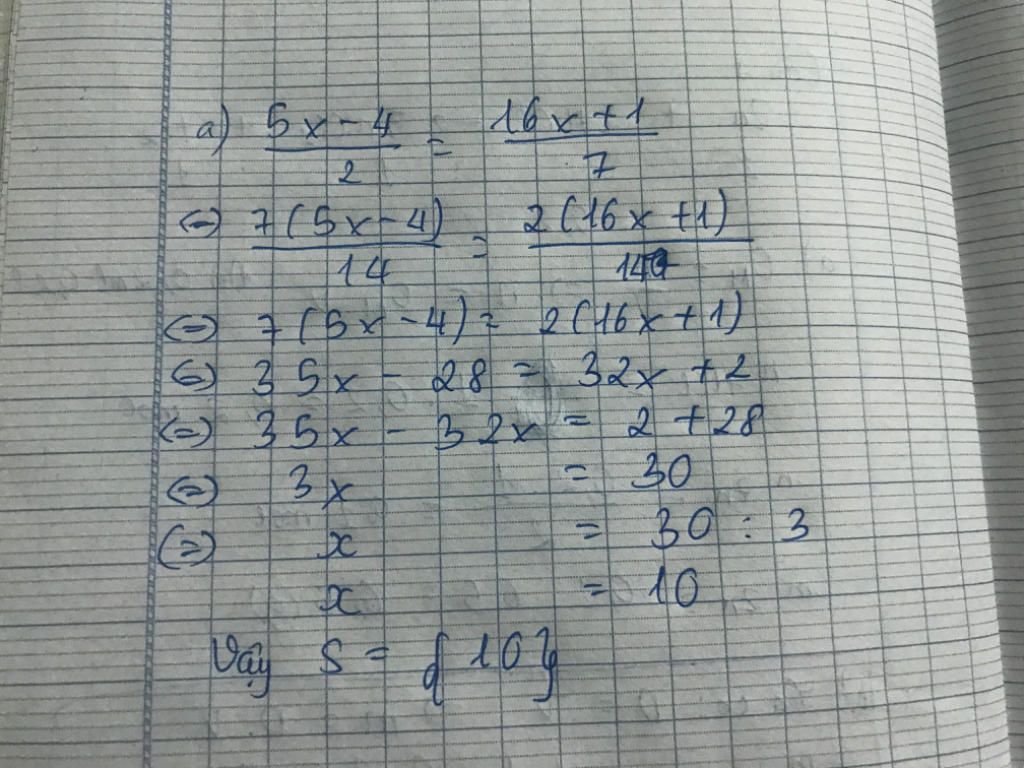 a) (5x - 4)/2 = (16x + 1)/7
(=) 7(5x - 4)/14 = 2(16x + 1)/14
(=) 7(5x - 4) = 2(16x + 1)
(=) 35x - 28 = 32x + 2
(=) 35x - 32x = 2 + 28
(=) 3x = 30
(=) x = 30 : 3
x = 10
Vậy S = {10}